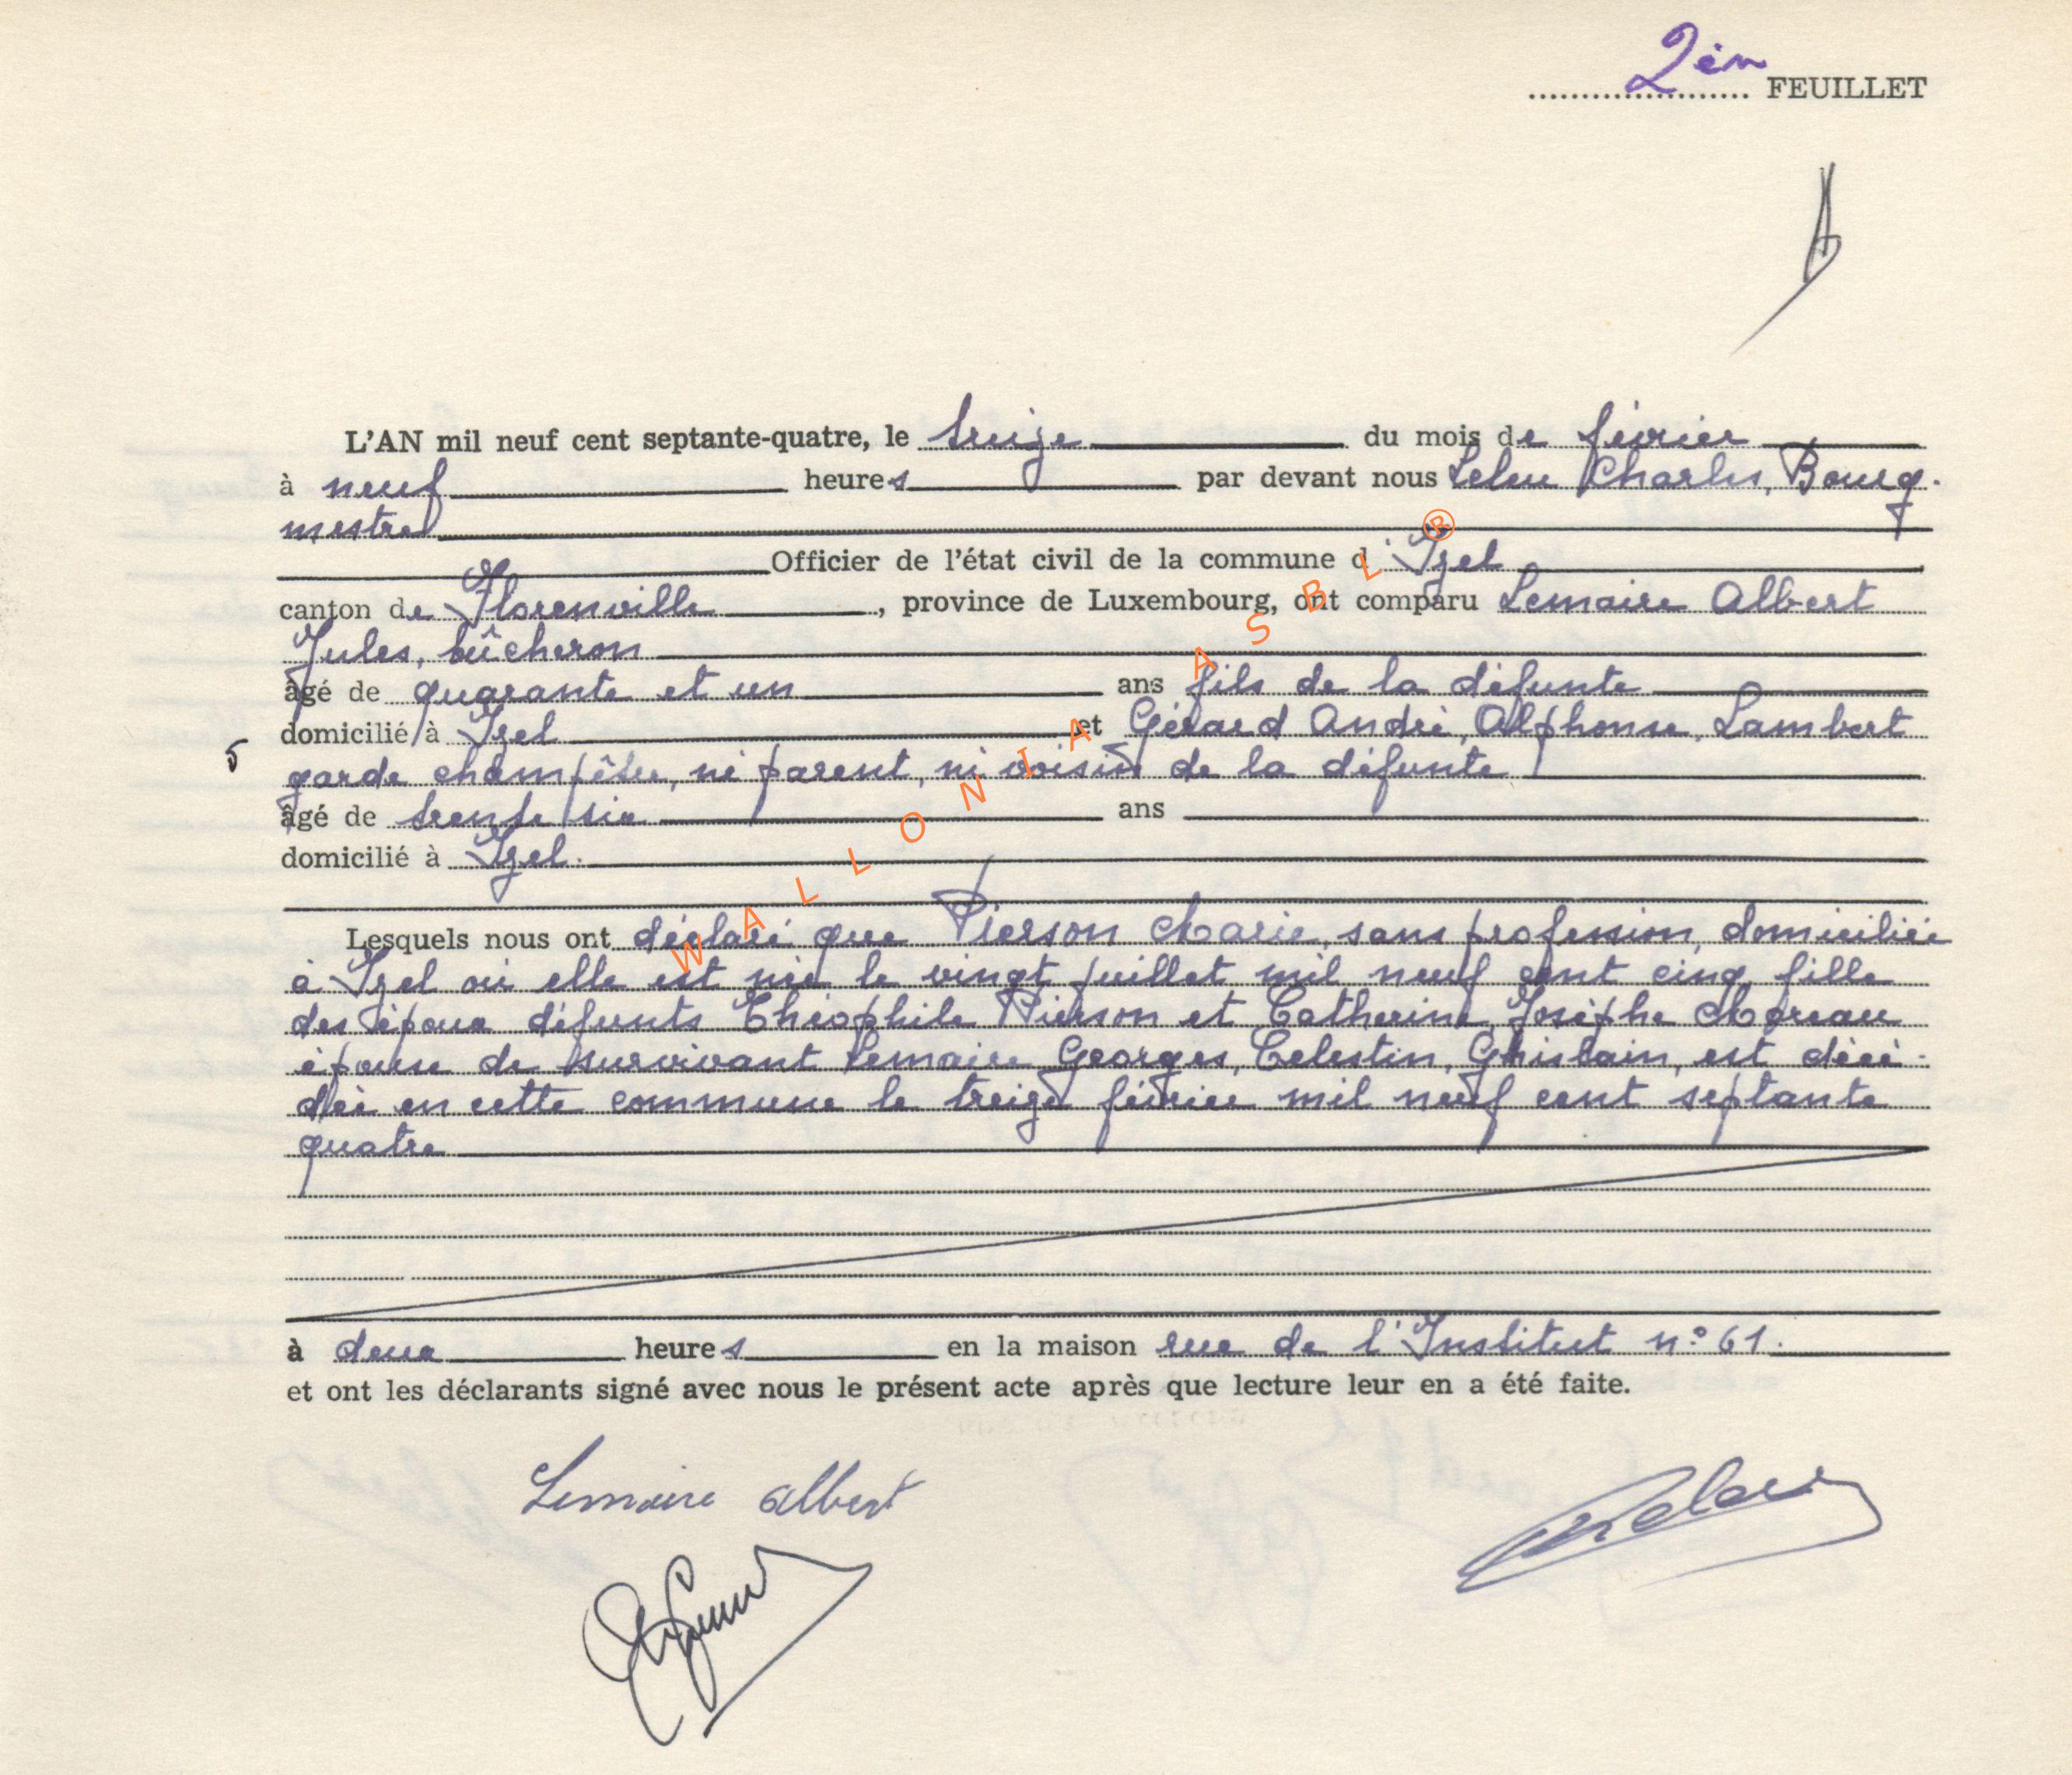 2èm FEUILLET
L'AN mil neuf cent septante-quatre, le treize du mois de février
à neuf heures par devant nous Leleu Charles, Bourg-
mestre
Officier de l'état civil de la commune d'Izel
canton de Florenville, province de Luxembourg, ont comparu Lemaire Albert
Jules, bûcheron
âgé de quarante et un ans fils de la défunte
domicilié à Izel et Gérard André, Alphonse, Lambert
5
garde champêtre, ni parent, ni voisin de la défunte
âgé de trente six ans
domicilié à Izel.
Lesquels nous ont déclaré que Pierson Marie, sans profession, domiciliée
à Izel où elle est née le vingt juillet mil neuf cent cinq, fille
des époux défunts Théophile Pierson et Catherine, Josèphe Moreau
épouse de survivant Lemaire Georges, Celestin, Ghislain, est décé-
dée en cette commune le treize février mil neuf cent septante
quatre
à deux heures en la maison rue de l'Institut n° 61.
et ont les déclarants signé avec nous le présent acte après que lecture leur en a été faite.
Lemaire Albert
WALLONIA ASBL ®